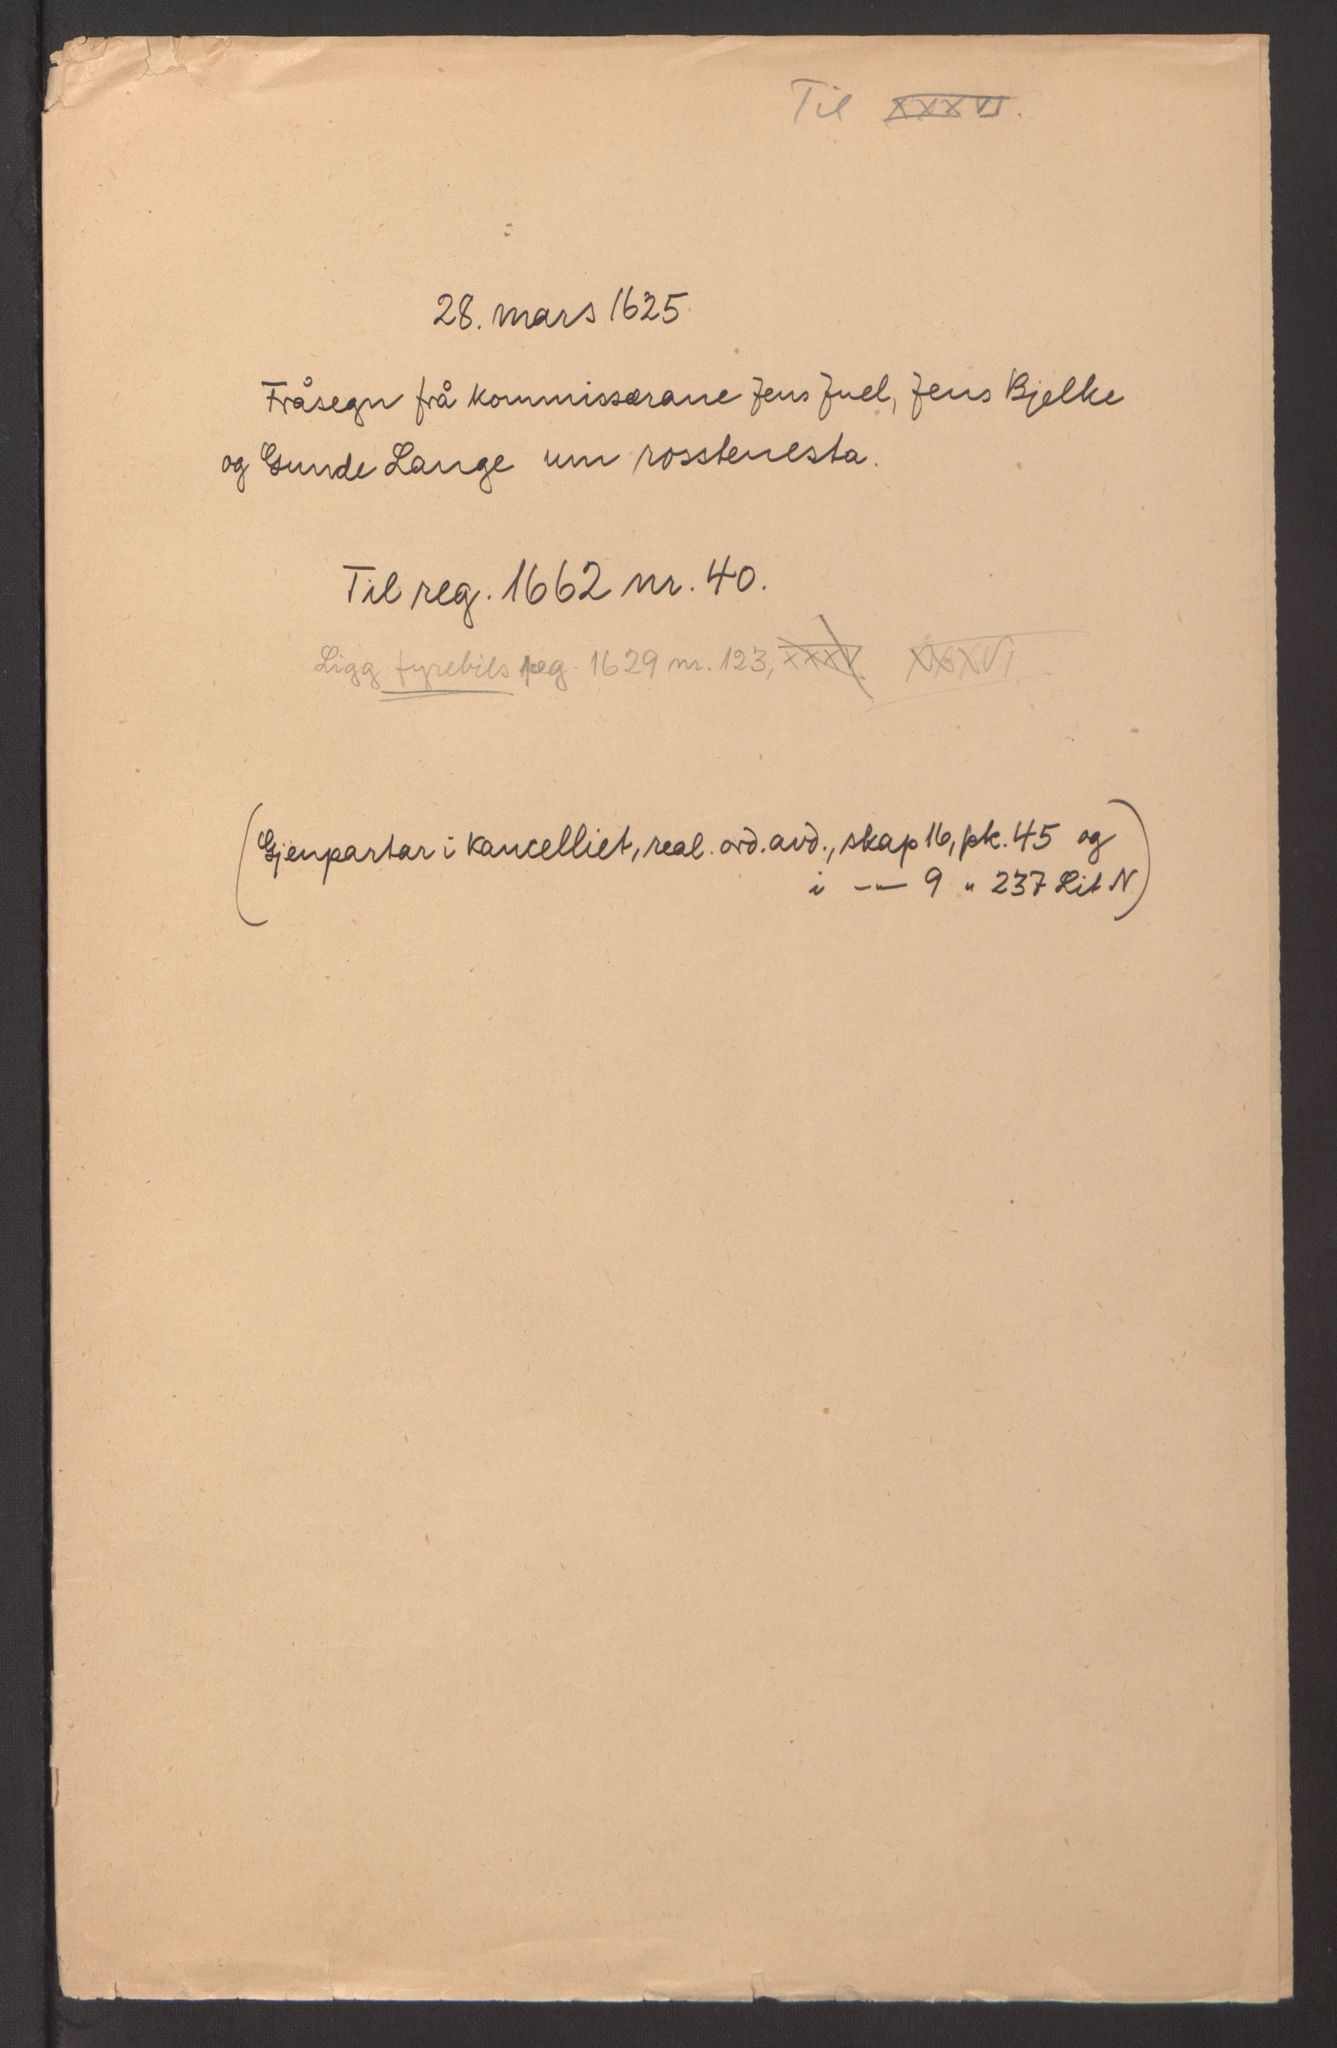 Til XXXVI.
28. mars 1625
Fråsegn frå kommissærane Jens Juel, Jens Bjelke
og Gunde Lange um rosstenesta.
Til reg. 1662 nr. 40.
Ligg fyrebils reg. 1629 nr. 123, XXXV. XXXVI.
(Gjenpartar i kancelliet, real. ord. avd., skap 16, pk. 45 og
i -"- 9 " 237 Lit N)